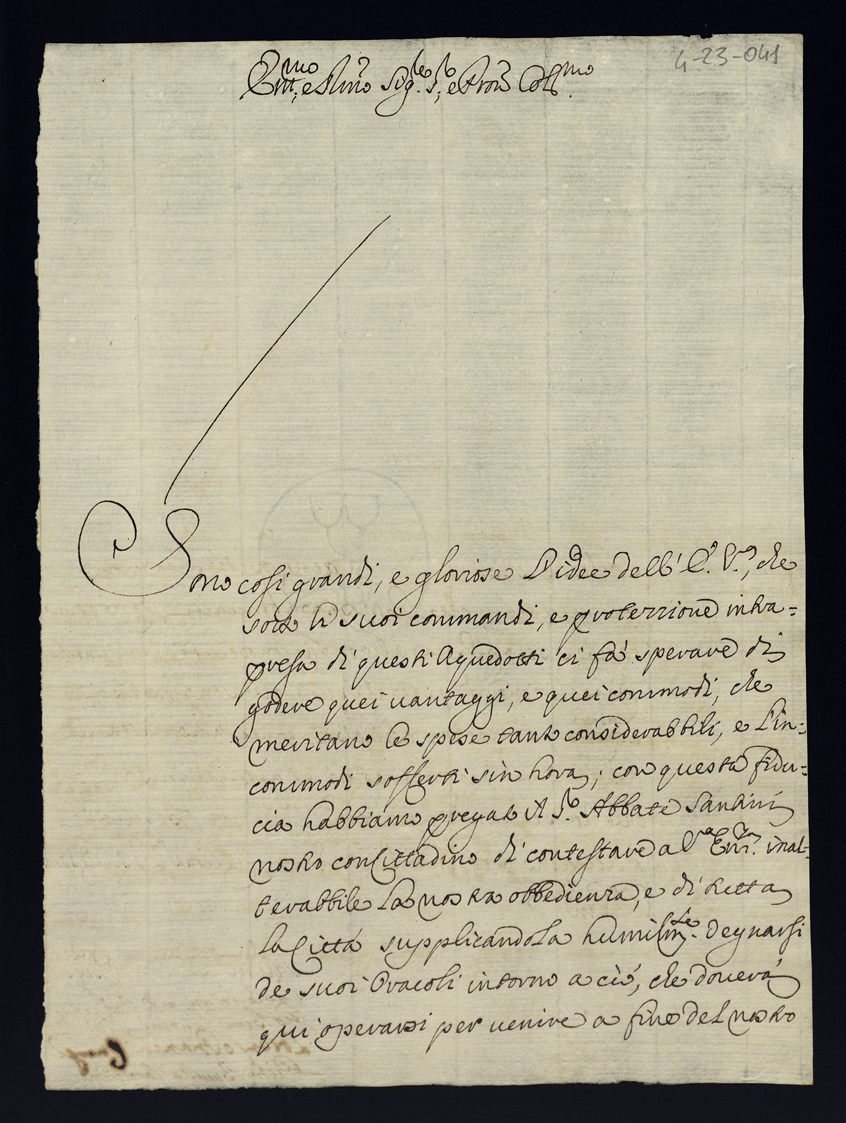 4-23-041
Em:mo, e R:mo Sig:re S:r, e Pron Col:mo
Sono così grandi, e gloriose l'idee dell' E. V.a, che
sotto li suoi commandi, e protezzione intra=
presa di questi Aquedotti ci fà sperare di
godere quei vantaggi, e quei commodi, che
meritano le spese tanto considerabbili, e l'in=
commodi sofferti sin hora; con questa fidu=
cia habbiamo pregato il S.r Abbate Santini
nostro conCittadino di contestare a V.a Em.za inal=
terabbile la nostra obbedienza, e di tutta
la Città supplicandola humilm.te degnarsi
de suoi Oracoli intorno a ciò, che doverà
qui operarsi per venire a fine del nostro